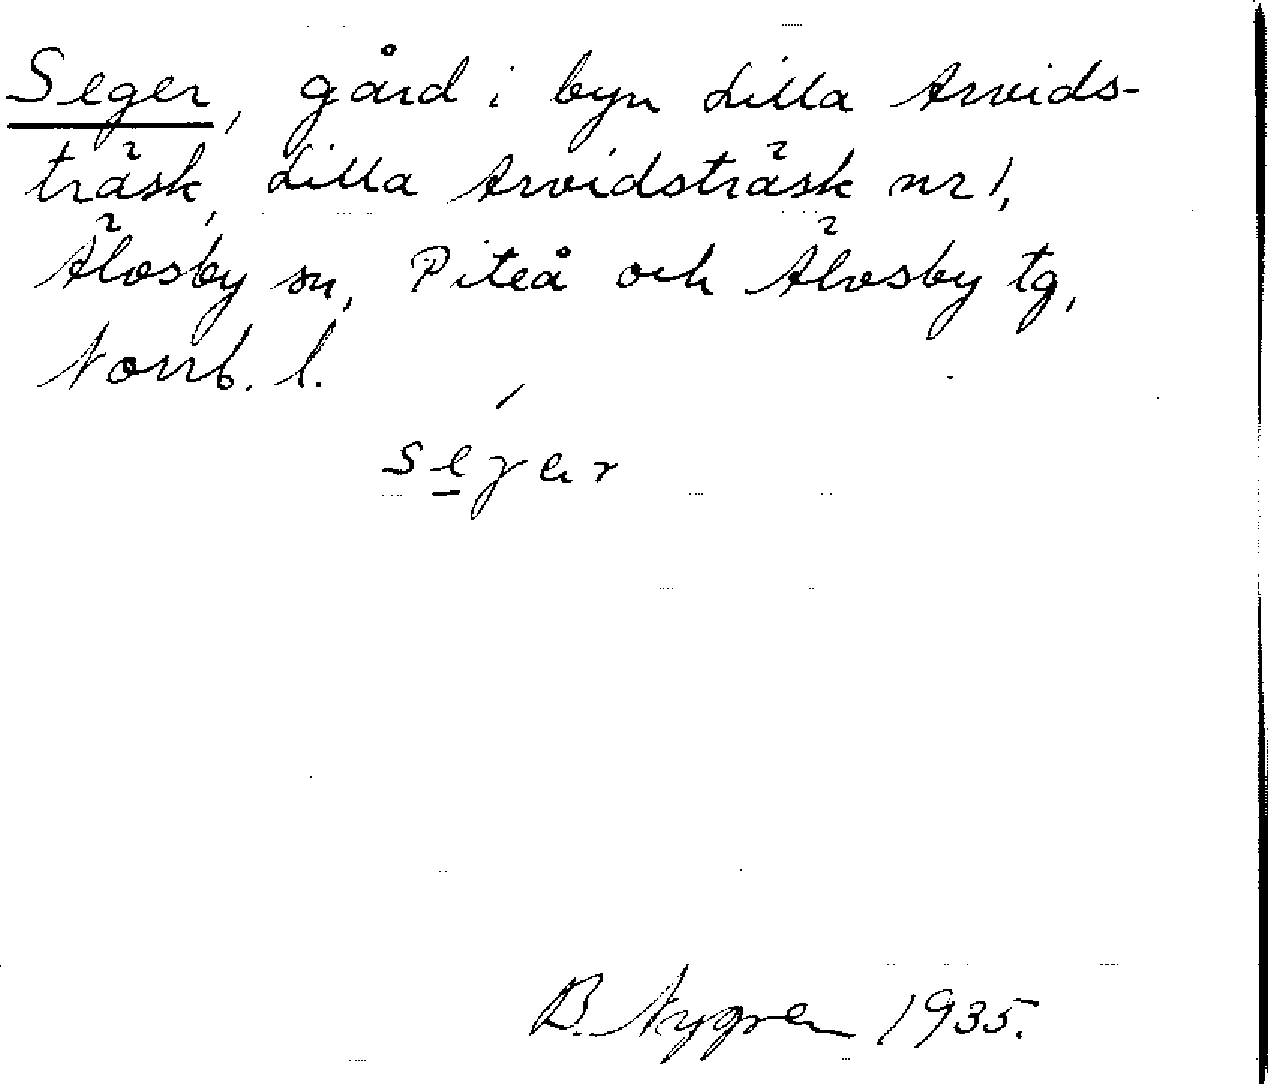 Seger, gård i byn Lilla Arvids-
träsk, Lilla Arvidsträsk nr 1,
Älvsby sn, Piteå och Älvsby tg,
Norrb. l.
sega̱r
B. Nygren 1935.